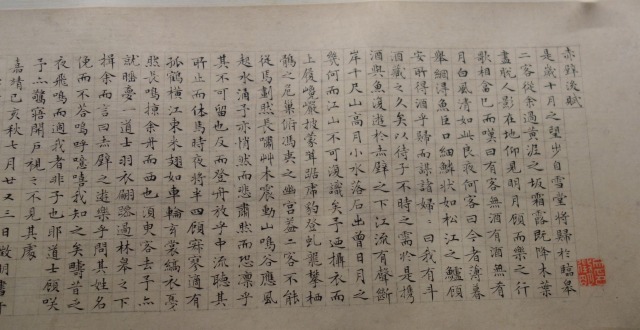 赤壁後賦
是歲十月之望步自雪堂將歸於臨皋
二客從余過黃泥之坂霜露既降木葉
盡脫人影在地仰見明月顧而樂之行
歌相答已而嘆曰有客無酒有酒無肴
月白風清如此良夜何客曰今者薄暮
舉網得魚巨口細鱗狀如松江之鱸顧
安所得酒乎歸而謀諸婦婦曰我有斗
酒藏之久矣以待子不時之需於是攜
酒與魚復遊於赤壁之下江流有聲斷
岸千尺山高月小水落石出曾日月之
幾何而江山不可復識矣予迺攝衣而
上履巉巖披蒙茸踞虎豹登虬龍攀棲
鶻之危巢俯馮夷之幽宮蓋二客不能
從焉劃然長嘯艸木震動山鳴谷應風
起水涌予亦悄然而悲肅然而恐凜乎
其不可留也反而登舟放乎中流聽其
所止而休焉時夜將半四顧寂寥適有
孤鶴橫江東來翅如車輪玄裳縞衣戛
然長鳴掠余舟而西也須臾客去予亦
就睡夢一道士羽衣翩躚過林皋之下
揖余而言曰赤壁之遊樂乎問其姓名
俛而不答嗚呼噫嘻我知之矣疇昔之
夜飛鳴而過我者非子也耶道士顧咲
予亦驚寤開戶視之不見其處
嘉靖己亥秋七月廿又三日徵明書